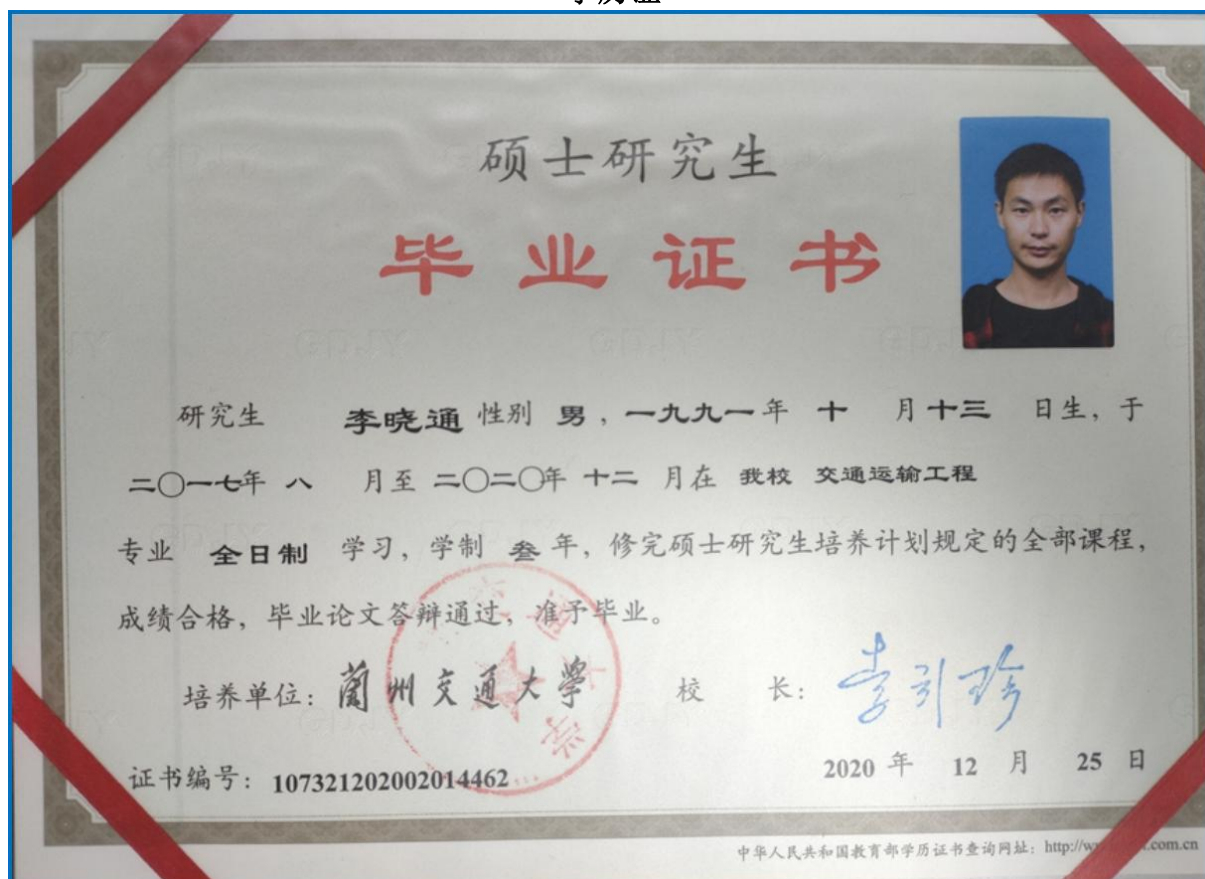 硕士研究生
毕业证书
研究生 李晓通 性别 男，一九九一年 十 月十三 日生，于
二〇一七年 八 月至 二〇二〇年 十二 月在 我校 交通运输工程
专业 全日制 学习，学制 叁 年，修完硕士研究生培养计划规定的全部课程，
成绩合格，毕业论文答辩通过，准予毕业。
培养单位：蘭州交通大學 校 长：李引珍
证书编号：107321202002014462 2020 年 12 月 25 日
中华人民共和国教育部学历证书查询网址：http://w .com.cn